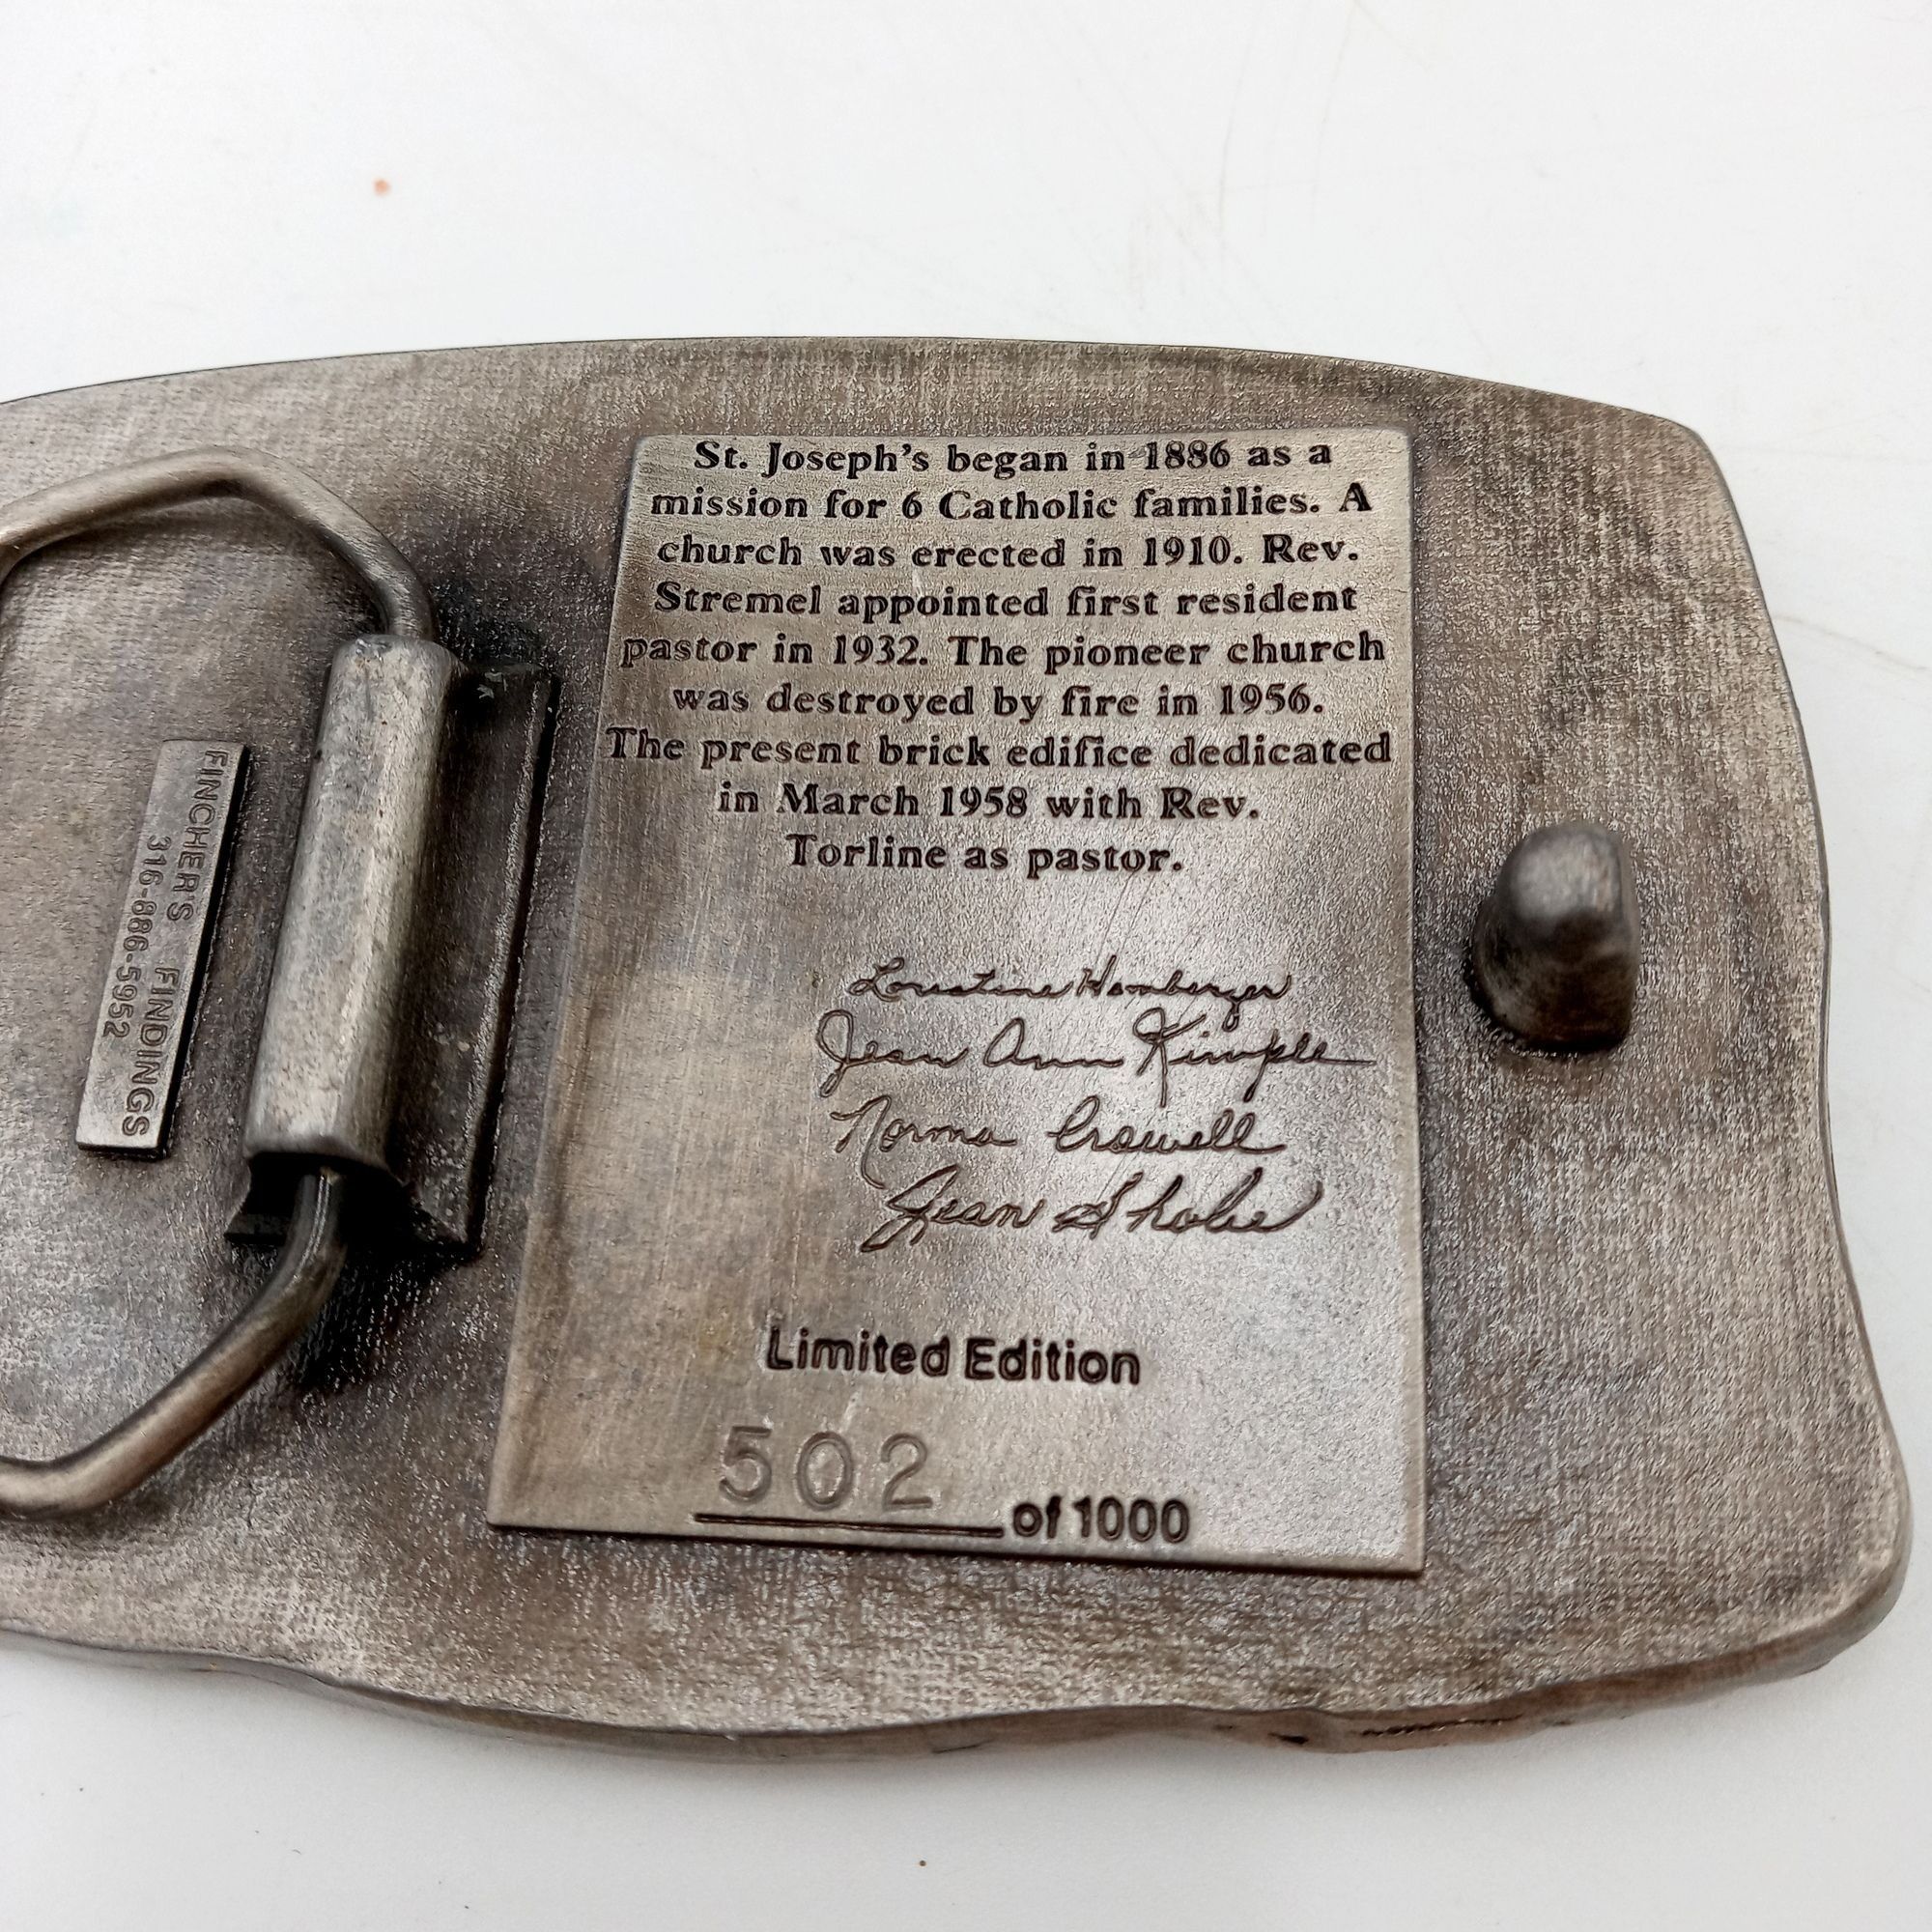 St. Joseph's began in 1886 as a
mission for 6 Catholic families. A
church was erected in 1910. Rev.
Stremel appointed first resident
pastor in 1932. The pioneer church
was destroyed by fire in 1956.
The present brick edifice dedicated
in March 1958 with Rev.
Torline as pastor.
Hamberger
Jean Ann Kimple
Norma Crowell
Jean
Limited Edition
502 of 1000
FINCHER'S FINDINGS
316-886-5952